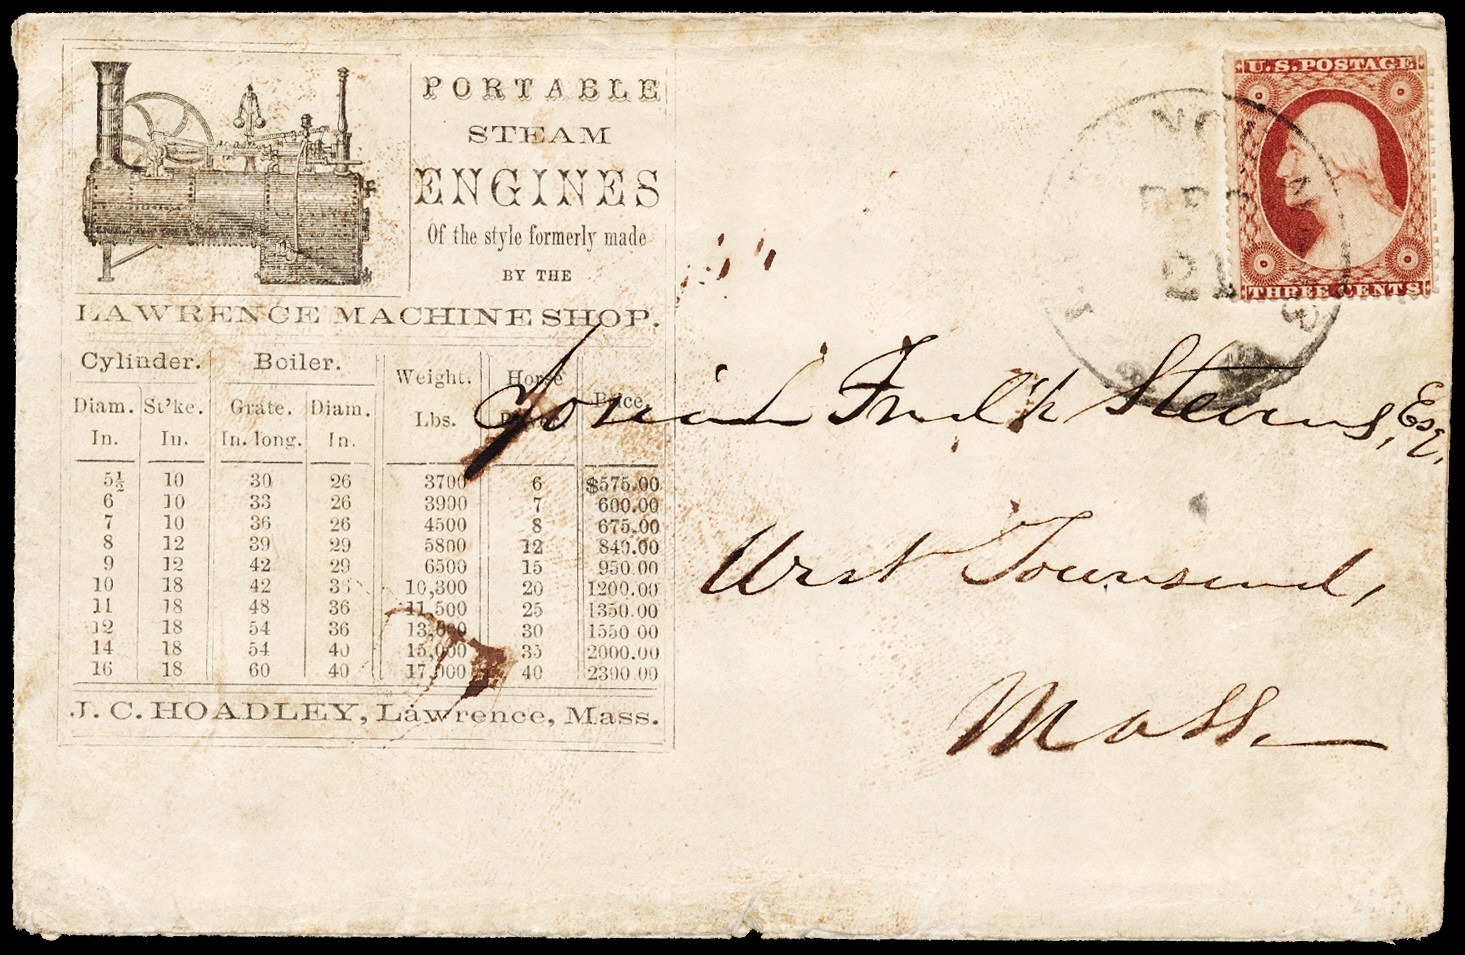 PORTABLE
STEAM
ENGINES
Of the style formerly made
BY THE
LAWRENCE MACHINE SHOP.
Cylinder. Boiler. Weight. Horse Price.
Diam. St'ke. Grate. Diam. Lbs.
In. In. In. long. In.
5½ 10 30 26 3700 6 $575.00
6 10 33 26 3900 7 600.00
7 10 36 26 4500 8 675.00
8 12 39 29 5800 12 840.00
9 12 42 29 6500 15 950.00
10 18 42 10,300 20 1200.00
11 18 48 36 11,500 25 1350.00
12 18 54 36 13,000 30 1550 00
14 18 54 40 15,000 35 2000.00
16 18 60 40 17,000 40 2300 00
J. C. HOADLEY, Lawrence, Mass.
U.S. POSTAGE
THREE CENTS
21
Stevens, Esq.
West Townsend,
Mass.